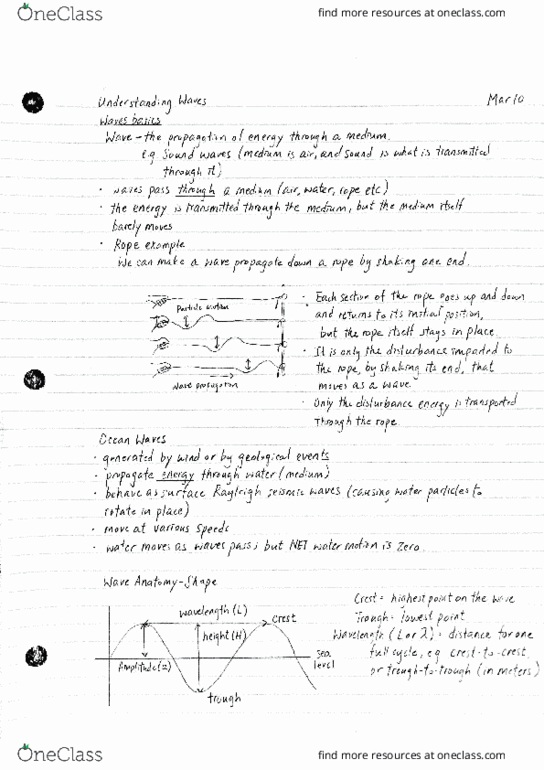 OneClass
find more resources at oneclass.com
Understanding Waves
Mar 10
Waves basics
Wave - the propagation of energy through a medium.
e.g. Sound waves (medium is air, and sound is what is transmitted
through it)
• waves pass through a medium (air, water, rope etc)
• the energy is transmitted through the medium, but the medium itself
barely moves
• Rope example
We can make a wave propagate down a rope by shaking one end.
Particle motion
wave propagation
• Each section of the rope goes up and down
and returns to its initial position,
but the rope itself stays in place.
• It is only the disturbance imparted to
the rope, by shaking its end, that
moves as a wave
• Only the disturbance energy is transported
through the rope.
Ocean Waves
• generated by wind or by geological events
• propagate energy through water (medium)
• behave as surface Rayleigh seismic waves (causing water particles to
rotate in place)
• move at various speeds
• water moves as waves pass; but NET water motion is zero.
Wave Anatomy - Shape
wavelength (L)
crest
height (H)
Amplitude (a)
sea
level
trough
Crest = highest point on the wave
Trough = lowest point
Wavelength (L or λ) = distance for one
full cycle, e.g. crest-to-crest,
or trough-to-trough (in meters)
OneClass
find more resources at oneclass.com